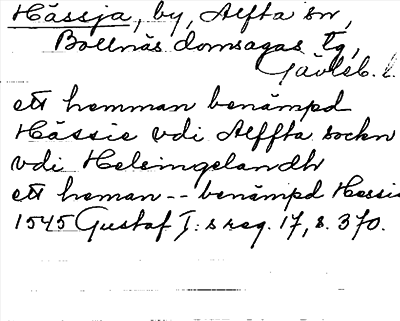 Hässja, by, Alfta sn,
Bollnäs domsagas tg,
Gävleb. l.
ett hemman benämpd
Hässie vdi Alffta sockn
vdi Helsingelandh
ett heman -- benämpd Hessie
1545 Gustaf I:s reg. 17, s. 370.